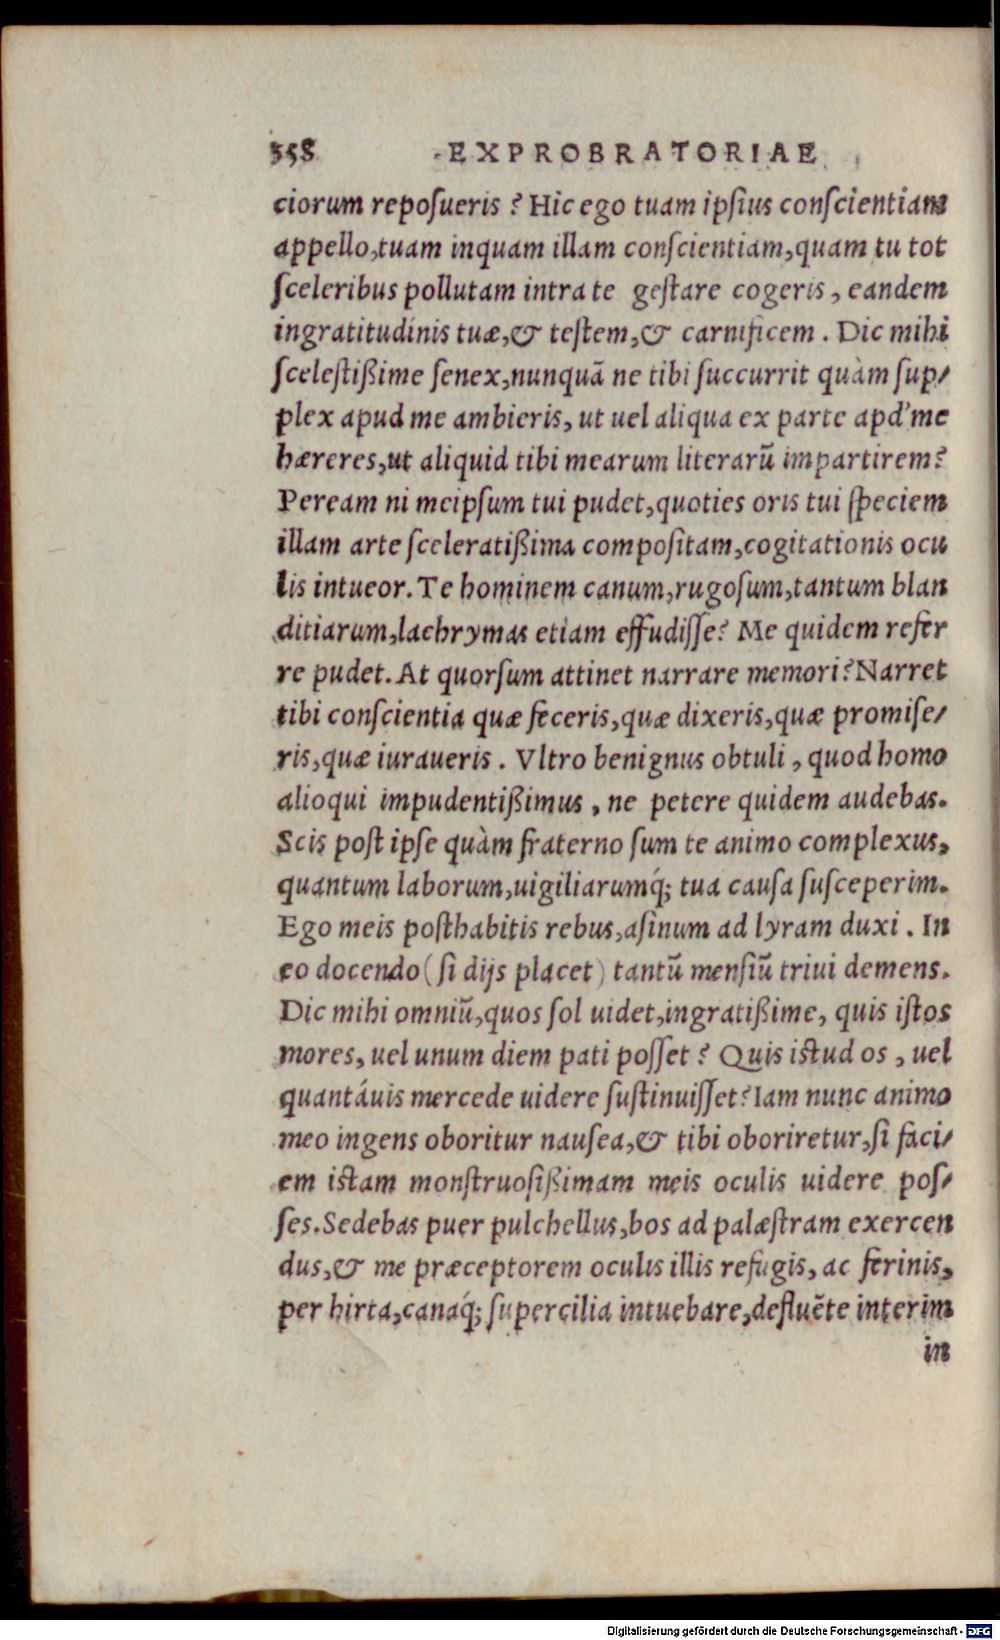 358 EXPROBRATORIAE
ciorum reposueris? Hic ego tuam ipsius conscientiam
appello,tuam inquam illam conscientiam,quam tu tot
sceleribus pollutam intra te gestare cogeris, eandem
ingratitudinis tuæ,& testem,& carnificem. Dic mihi
scelestißime senex,nunquā ne tibi succurrit quàm sup-
plex apud me ambieris, ut uel aliqua ex parte apd' me
hæreres,ut aliquid tibi mearum literarū impartirem?
Peream ni meipsum tui pudet,quoties oris tui speciem
illam arte sceleratißima compositam,cogitationis ocu
lis intueor. Te hominem canum,rugosum,tantum blan
ditiarum,lachrymas etiam effudisse? Me quidem refer
re pudet. At quorsum attinet narrare memori? Narret
tibi conscientia quæ feceris,quæ dixeris,quæ promise-
ris,quæ iuraueris. Vltro benignus obtuli, quod homo
alioqui impudentißimus, ne petere quidem audebas.
Scis post ipse quàm fraterno sum te animo complexus,
quantum laborum,uigiliarumq́; tua causa susceperim.
Ego meis posthabitis rebus,asinum ad lyram duxi. In
eo docendo (si dijs placet) tantū mensiū triui demens.
Dic mihi omniū,quos sol uidet,ingratißime, quis istos
mores, uel unum diem pati posset? Quis istud os, uel
quantáuis mercede uidere sustinuisset? Iam nunc animo
meo ingens oboritur nausea,& tibi oboriretur,si faci-
em istam monstruosißimam meis oculis uidere pos-
ses. Sedebas puer pulchellus,bos ad palæstram exercen
dus,& me præceptorem oculis illis refugis, ac ferinis,
per hirta,canaq́; supercilia intuebare,defluēte interim
in
Digitalisierung gefördert durch die Deutsche Forschungsgemeinschaft - DFG